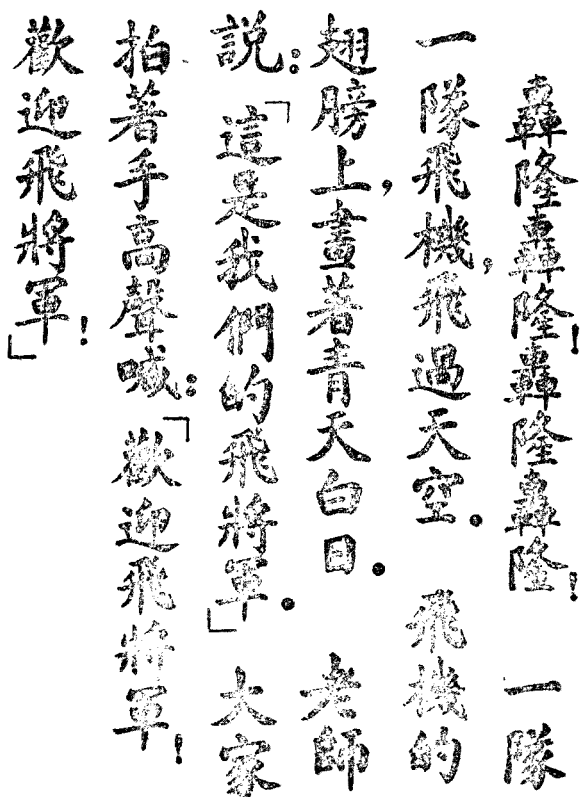 轟隆轟隆！轟隆轟隆！一隊
一隊飛機，飛過天空．飛機的
翅膀上，畫著青天白日．老師
說：「這是我們的飛將軍．」大家
拍著手高聲喊：「歡迎飛將軍！
歡迎飛將軍！」